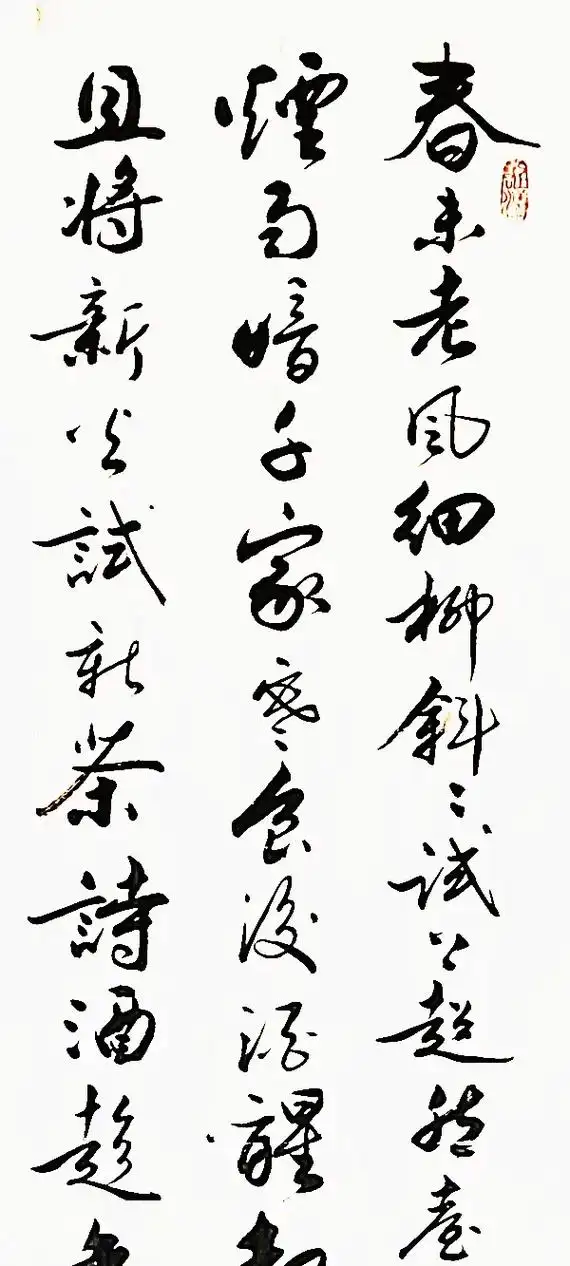 春未老風細柳斜〻試上超然臺
煙雨暗千家寒食後酒醒
且將新火試新茶詩酒趁